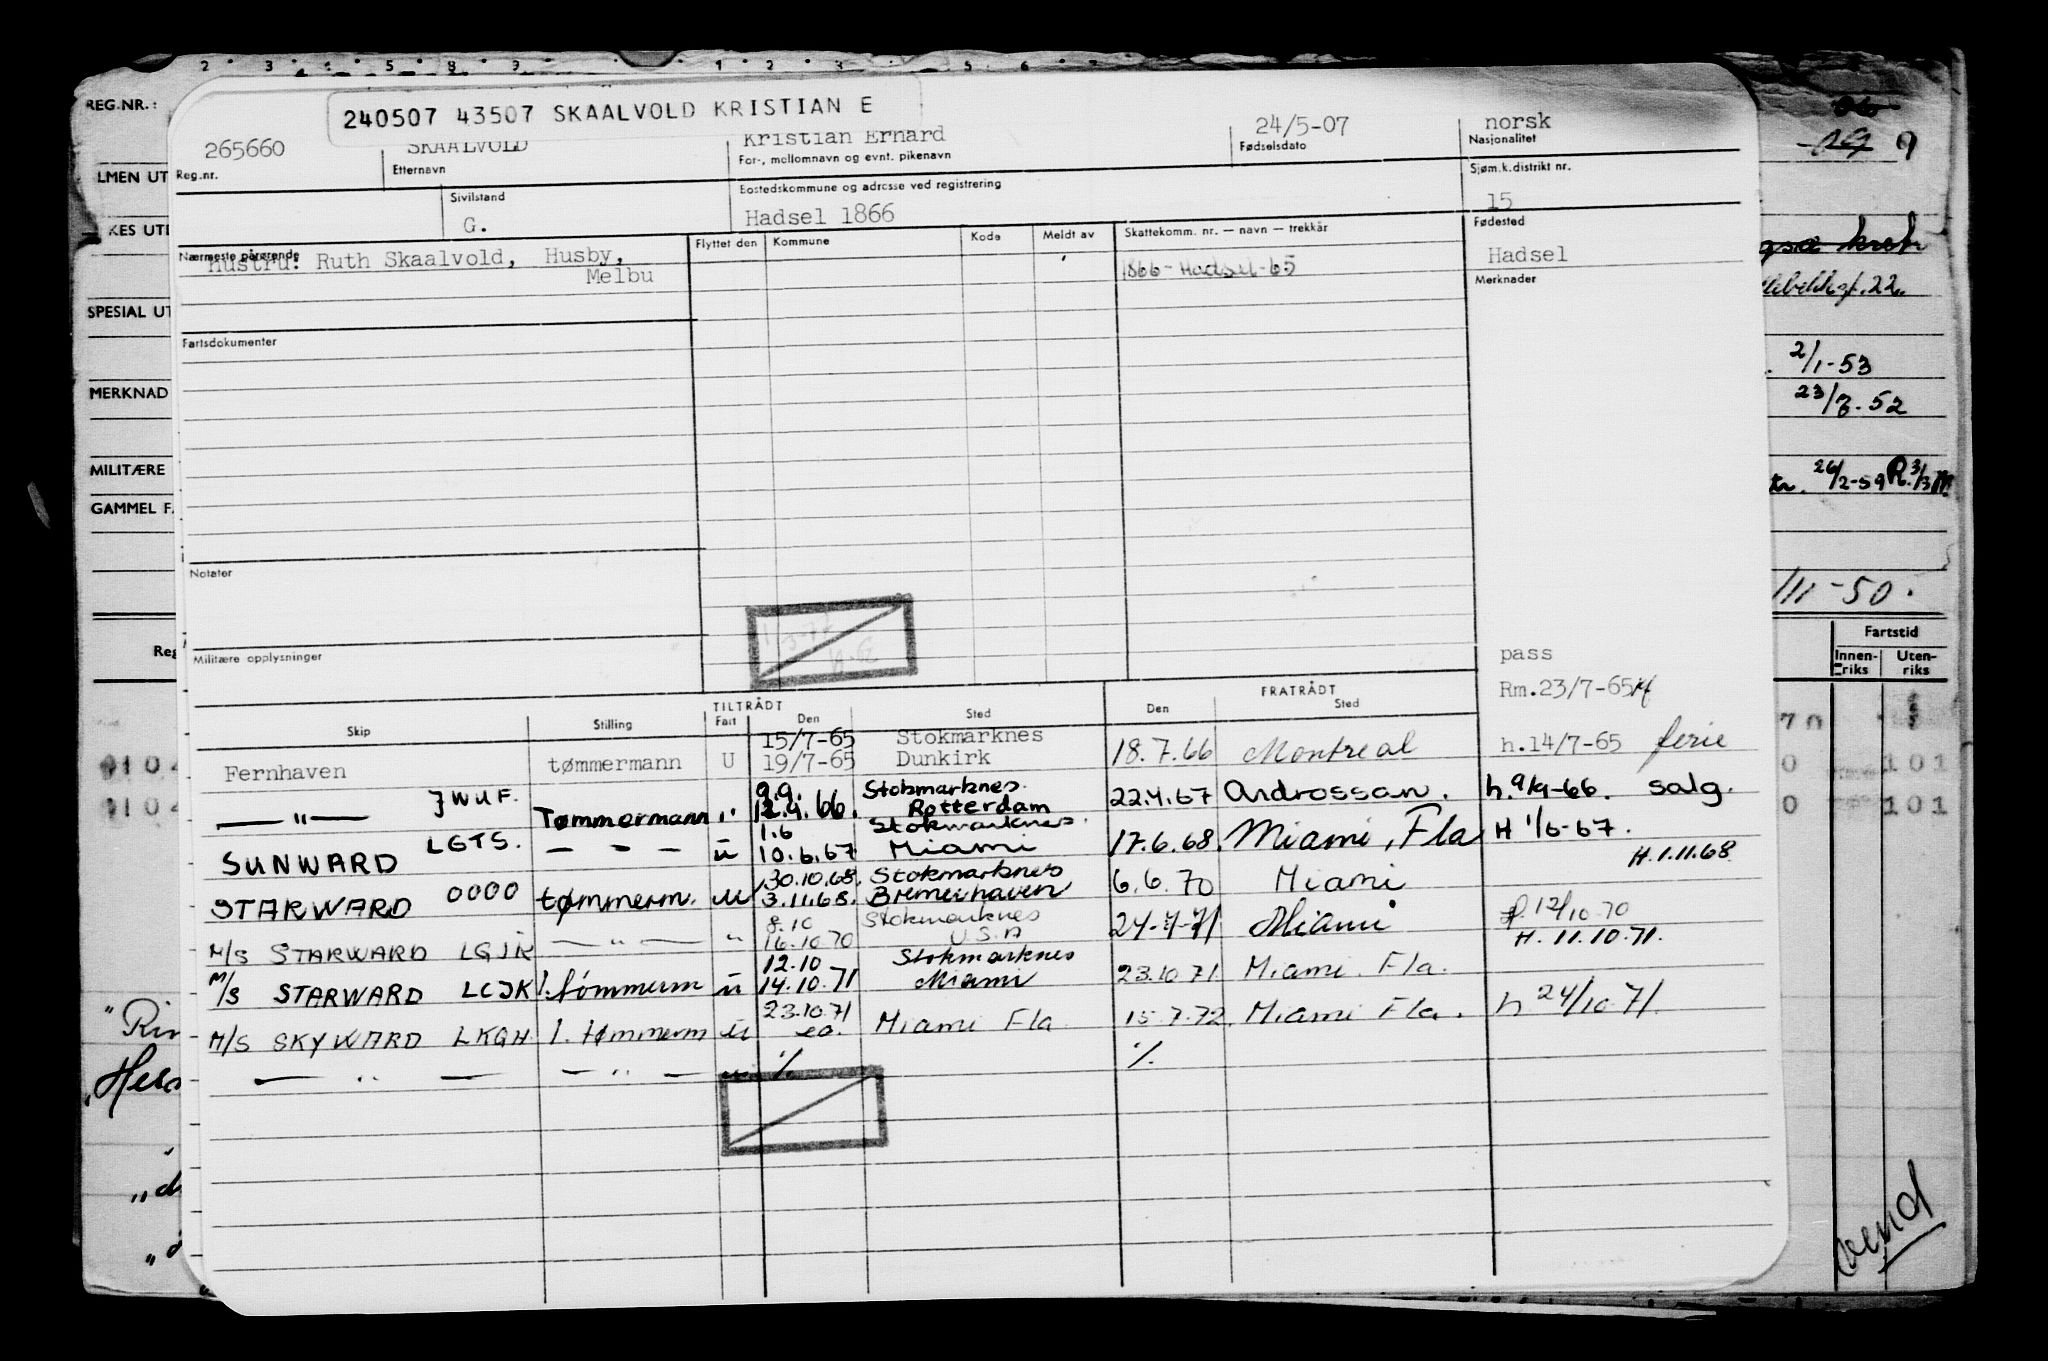 REG.NR.:
240507 43507 SKAALVOLD KRISTIAN E
265660 SKAALVOLD Kristian Ernard 24/5-07 norsk
Reg.nr. Etternavn For-, mellomnavn og evnt. pikenavn Fødselsdato Nasjonalitet
LMEN UT
Sivilstand Bostedskommune og adresse ved registrering Sjøm.k.distrikt nr.
G. Hadsel 1866 15
KES UTD
Nærmeste pårørende Flyttet den Kommune Kode Meldt av Skattekomm. nr. — navn — trekkår Fødested
Hustru: Ruth Skaalvold, Husby, 1866-Hadsel-65 Hadsel
Melbu Merknader
22.
SPESIAL UT
Fartsdokumenter
2/1-53
MERKNAD
23/7.52
MILITÆRE
26/2-59
GAMMEL F.
Notater
/11-50.
Fartstid
Innenriks Utenriks
Reg
Militære opplysninger
pass
Rm.23/7-65
TILTRÅDT FRATRÅDT
Skip Stilling Fart Den Sted Den Sted
15/7-65 Stokmarknes
Fernhaven tømmermann U 19/7-65 Dunkirk 18.7.66 Montreal h.14/7-65 ferie
9.9. Stokmarknes.
— " — JWUF. Tømmermann " 12.9.66. Rotterdam 22.4.67 Androssan. h.9/9-66. salg.
1.6 Stokmarknes.
SUNWARD LGTS. — - — ū 10.6.67 Miami 17.6.68. Miami, Fla H 1/6-67.
H.1.11.68
30.10.68. Stokmarknes
STARWARD OOOO tømmerm. U 3.11.68. Bremerhaven 6.6.70 Miami
8.10 Stokmarknes
M/S STARWARD LGJK — " — " 16.10.70 U.S.A 24-7-71 Miami 12/10.70
H. 11.10.71.
12.10 Stokmarknes
M/S STARWARD LCJK 1. tømmerm ū 14.10.71 Miami 23.10.71 Miami. Fla.
23.10.71
M/S SKYWARD LKGH 1. tømmerm ū eo. Miami Fla 15.7.72. Miami Fla. h 24/10.71.
— " — — " — ū % %
"Rin
"
"d
"
Vend